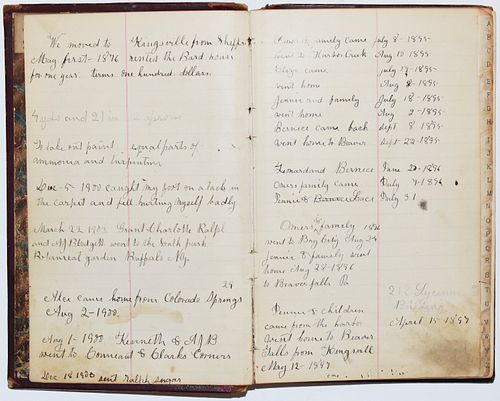 We moved to Kingsville from
May first - 1876 rented the Bard house
for one year. terms one hundred dollars.
and 21
To take out paint equal parts of
ammonia and turpentine
Dec - 5 - 1900 caught my foot on a tack in
the carpet and fell hurting myself badly
March 22 1903 Grant Charlotte Ralph
and A J Blodgett went to the South park
Botanical garden Buffalo Ny.
29
Alce came home from Colorado Springs
Aug 2 - 1900.
Aug 1 - 1900 Kenneth & A J B
went to Conneaut & Clarks Corners
Dec 18 1900 sent Ralph sugar
family came July 8 - 1895
went to Harbor Creek Aug 10 1895
came July 17 - 1895
went home Aug 8 - 1895
Jennie and family July 18 - 1895
went home Aug 2 - 1895
Bernice came back Sept 8 1895
went home to Beaver Sept - 22 - 1895
Leonard and Bernice June 20 - 1896
Omers family came July 7 - 1896
Jennie & Bernice July 31
Omer & family 1896
went to Bay City Aug 24
Jennie & family went
home Aug 28 - 1896
to Beaver falls Pa
218 Lycenum
Jennie & children
came from the harbor April 15 - 1897
went home to Beaver
Falls from Kingsville
May 12 - 1897
A
B
C
D
E
F
G
H
I
J
K
L
M
N
O
P
Q
R
S
T
U
V
W